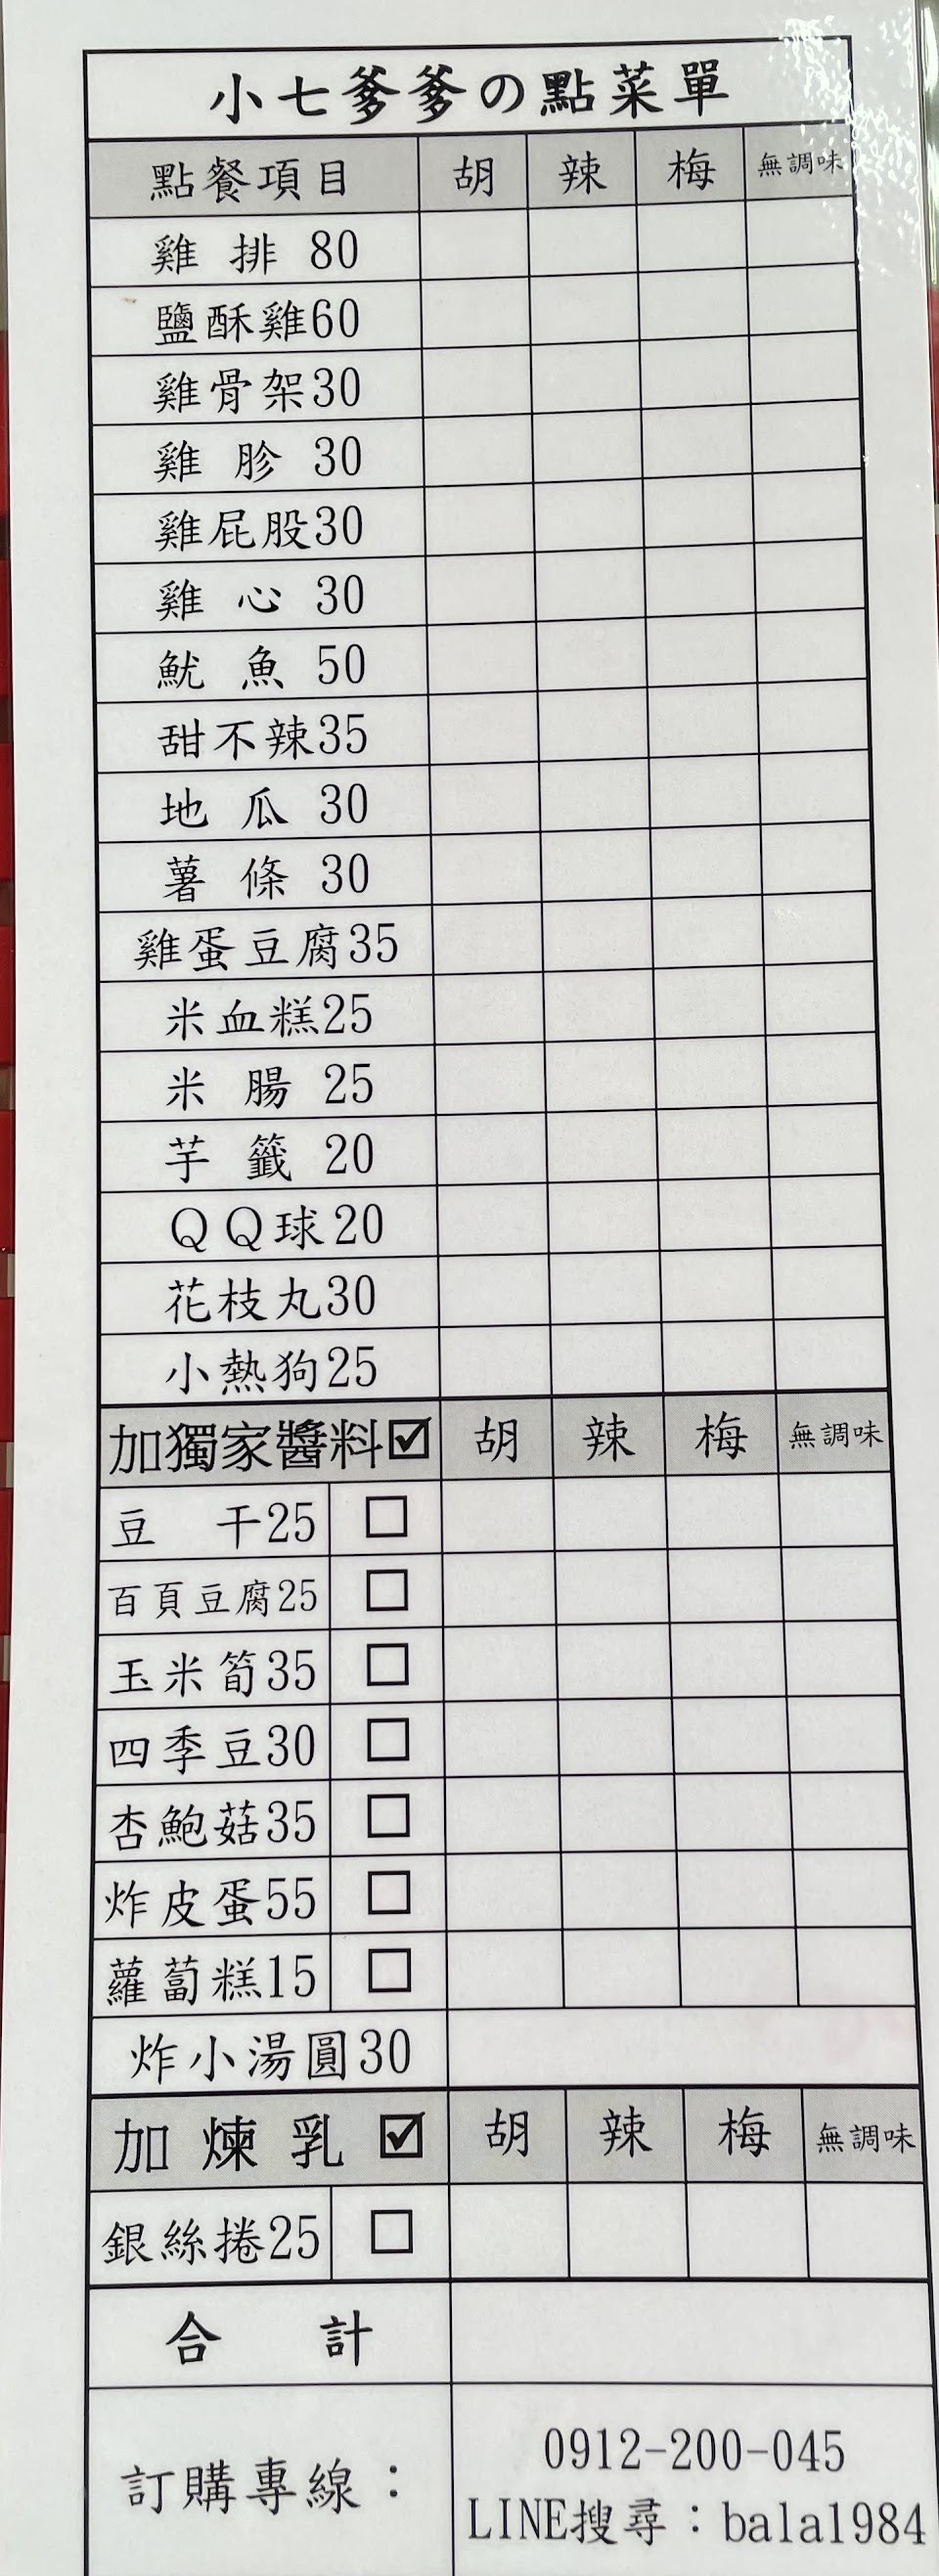 小七爹爹の點菜單
點餐項目 胡 辣 梅 無調味
雞排 80
鹽酥雞60
雞骨架30
雞胗 30
雞屁股30
雞心 30
魷魚 50
甜不辣35
地瓜 30
薯條 30
雞蛋豆腐35
米血糕25
米腸 25
芋籤 20
QQ球20
花枝丸30
小熱狗25
加獨家醬料☑ 胡 辣 梅 無調味
豆干25 □
百頁豆腐25 □
玉米筍35 □
四季豆30 □
杏鮑菇35 □
炸皮蛋55 □
蘿蔔糕15 □
炸小湯圓30
加煉乳☑ 胡 辣 梅 無調味
銀絲捲25 □
合計
訂購專線：
0912-200-045
LINE搜尋：bala1984